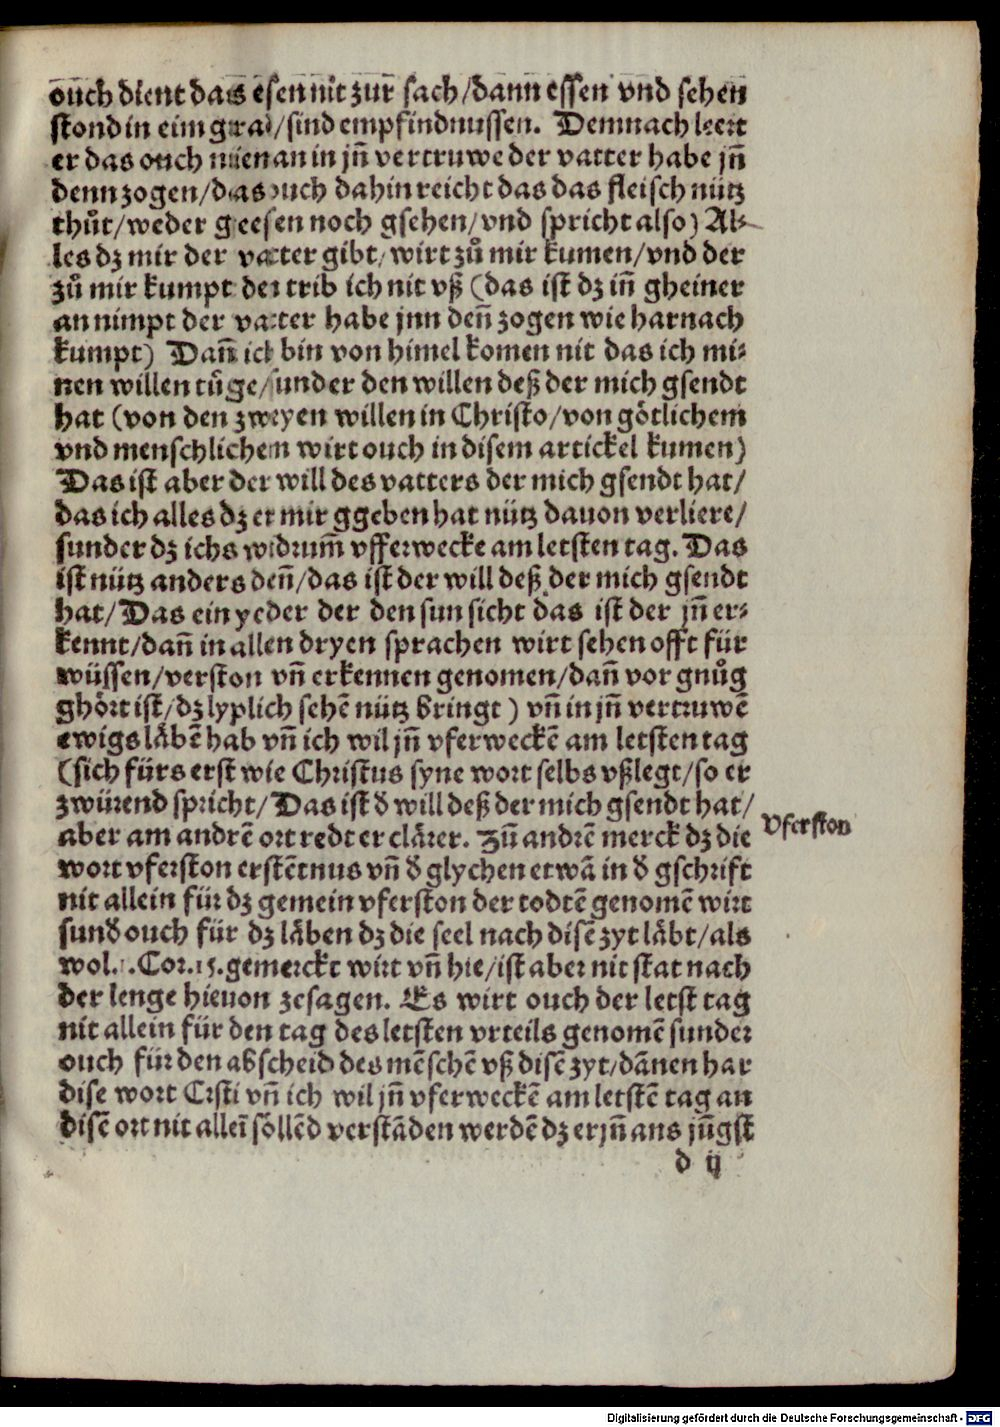 ouch dient das esen nit zur sach/dann essen vnd sehen
stond in eim grad/sind empfindnussen. Demnach leert
er das ouch nieman in jn̄ vertruwe der vatter habe jn̄
denn zogen/das ouch dahin reicht das das fleisch nütz
thůt/weder geesen noch gsehen/vnd spricht also) Al-
les dz mir der vatter gibt/wirt zů mir kumen/vnd der
zů mir kumpt den trib ich nit vß (das ist dz in̄ gheiner
an nimpt der vatter habe jnn den̄ zogen wie harnach
kumpt) Dan̄ ich bin von himel komen nit das ich mi-
nen willen tůge/sunder den willen deß der mich gsendt
hat (von den zweyen willen in Christo/von götlichem
vnd menschlichem wirt ouch in disem artickel kumen)
Das ist aber der will des vatters der mich gsendt hat/
das ich alles dz er mir ggeben hat nütz dauon verliere/
sunder dz ichs widrum̄ vfferwecke am letsten tag. Das
ist nütz anders den̄/das ist der will deß der mich gsendt
hat/Das ein yeder der den sun sicht das ist der jn̄ er-
kennt/dan̄ in allen dryen sprachen wirt sehen offt für
wüssen/verston vn̄ erkennen genomen/dan̄ vor gnůg
ghört ist/dz lyplich sehē nütz bringt) vn̄ in jn̄ vertruwē
ewigs läbē hab vn̄ ich wil jn̄ vferweckē am letsten tag
(sich fürs erst wie Christus syne wort selbs vßlegt/so er
zwürend spricht/Das ist d̄ will deß der mich gsendt hat/
aber am andrē ort redt er clärer. Zū andrē merck dz die
wort vferston erstētnus vn̄ d̄ glychen etwā in d̄ gschrift
nit allein für dz gemein vferston der todtē genomē wirt
sund̄ ouch für dz läben dz die seel nach disē zyt läbt/als
wol .1.Cor.15.gemerckt wirt vn̄ hie/ist aber nit stat nach
der lenge hieuon zesagen. Es wirt ouch der letst tag
nit allein für den tag des letsten vrteils genomē sunder
ouch für den abscheid des mēschē vß disē zyt/dānen har
dise wort Crsti vn̄ ich wil jn̄ vferweckē am letstē tag an
disē ort nit alleī söllēd verstāden werdē dz er jn̄ ans jūgst
vferston
d ij
Digitalisierung gefördert durch die Deutsche Forschungsgemeinschaft - DFG